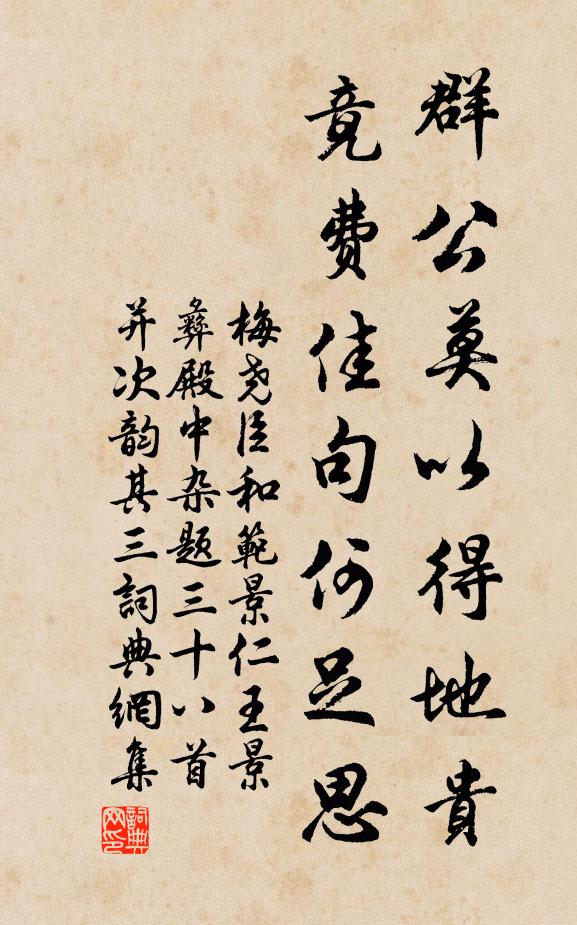 群公莫以得地貴
竟費佳句何足思
梅堯臣和範景仁王景
彝殿中杂題三十八首
并次韵其三詞典網集
詞典网印